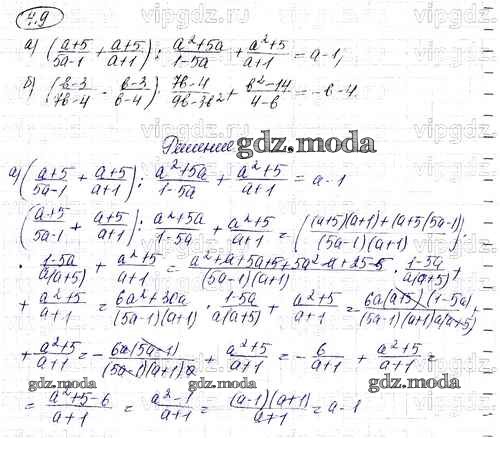 4.9
а) ((a+5)/(5a-1) + (a+5)/(a+1)) : (a²+5a)/(1-5a) + (a²+5)/(a+1) = a-1,
б) ((b-3)/(7b-4) - (b-3)/(b-4)) · (7b-4)/(9b-3b²) + (b²-14)/(4-b) = -b-4.
Решение
gdz.moda
а) ((a+5)/(5a-1) + (a+5)/(a+1)) : (a²+5a)/(1-5a) + (a²+5)/(a+1) = a-1
((a+5)/(5a-1) + (a+5)/(a+1)) : (a²+5a)/(1-5a) + (a²+5)/(a+1) = (((a+5)(a+1)+(a+5)(5a-1))/((5a-1)(a+1))) ·
· (1-5a)/(a(a+5)) + (a²+5)/(a+1) = (a²+a+5a+5+5a²-a+25a-5)/((5a-1)(a+1)) · (1-5a)/(a(a+5)) +
+ (a²+5)/(a+1) = (6a²+30a)/((5a-1)(a+1)) · (1-5a)/(a(a+5)) + (a²+5)/(a+1) = (6a(a+5)(1-5a))/((5a-1)(a+1)a(a+5)) +
+ (a²+5)/(a+1) = - (6a(5a-1))/((5a-1)(a+1)a) + (a²+5)/(a+1) = - 6/(a+1) + (a²+5)/(a+1) =
gdz.moda gdz.moda
= (a²+5-6)/(a+1) = (a²-1)/(a+1) = ((a-1)(a+1))/(a+1) = a-1
gdz.moda gdz.moda